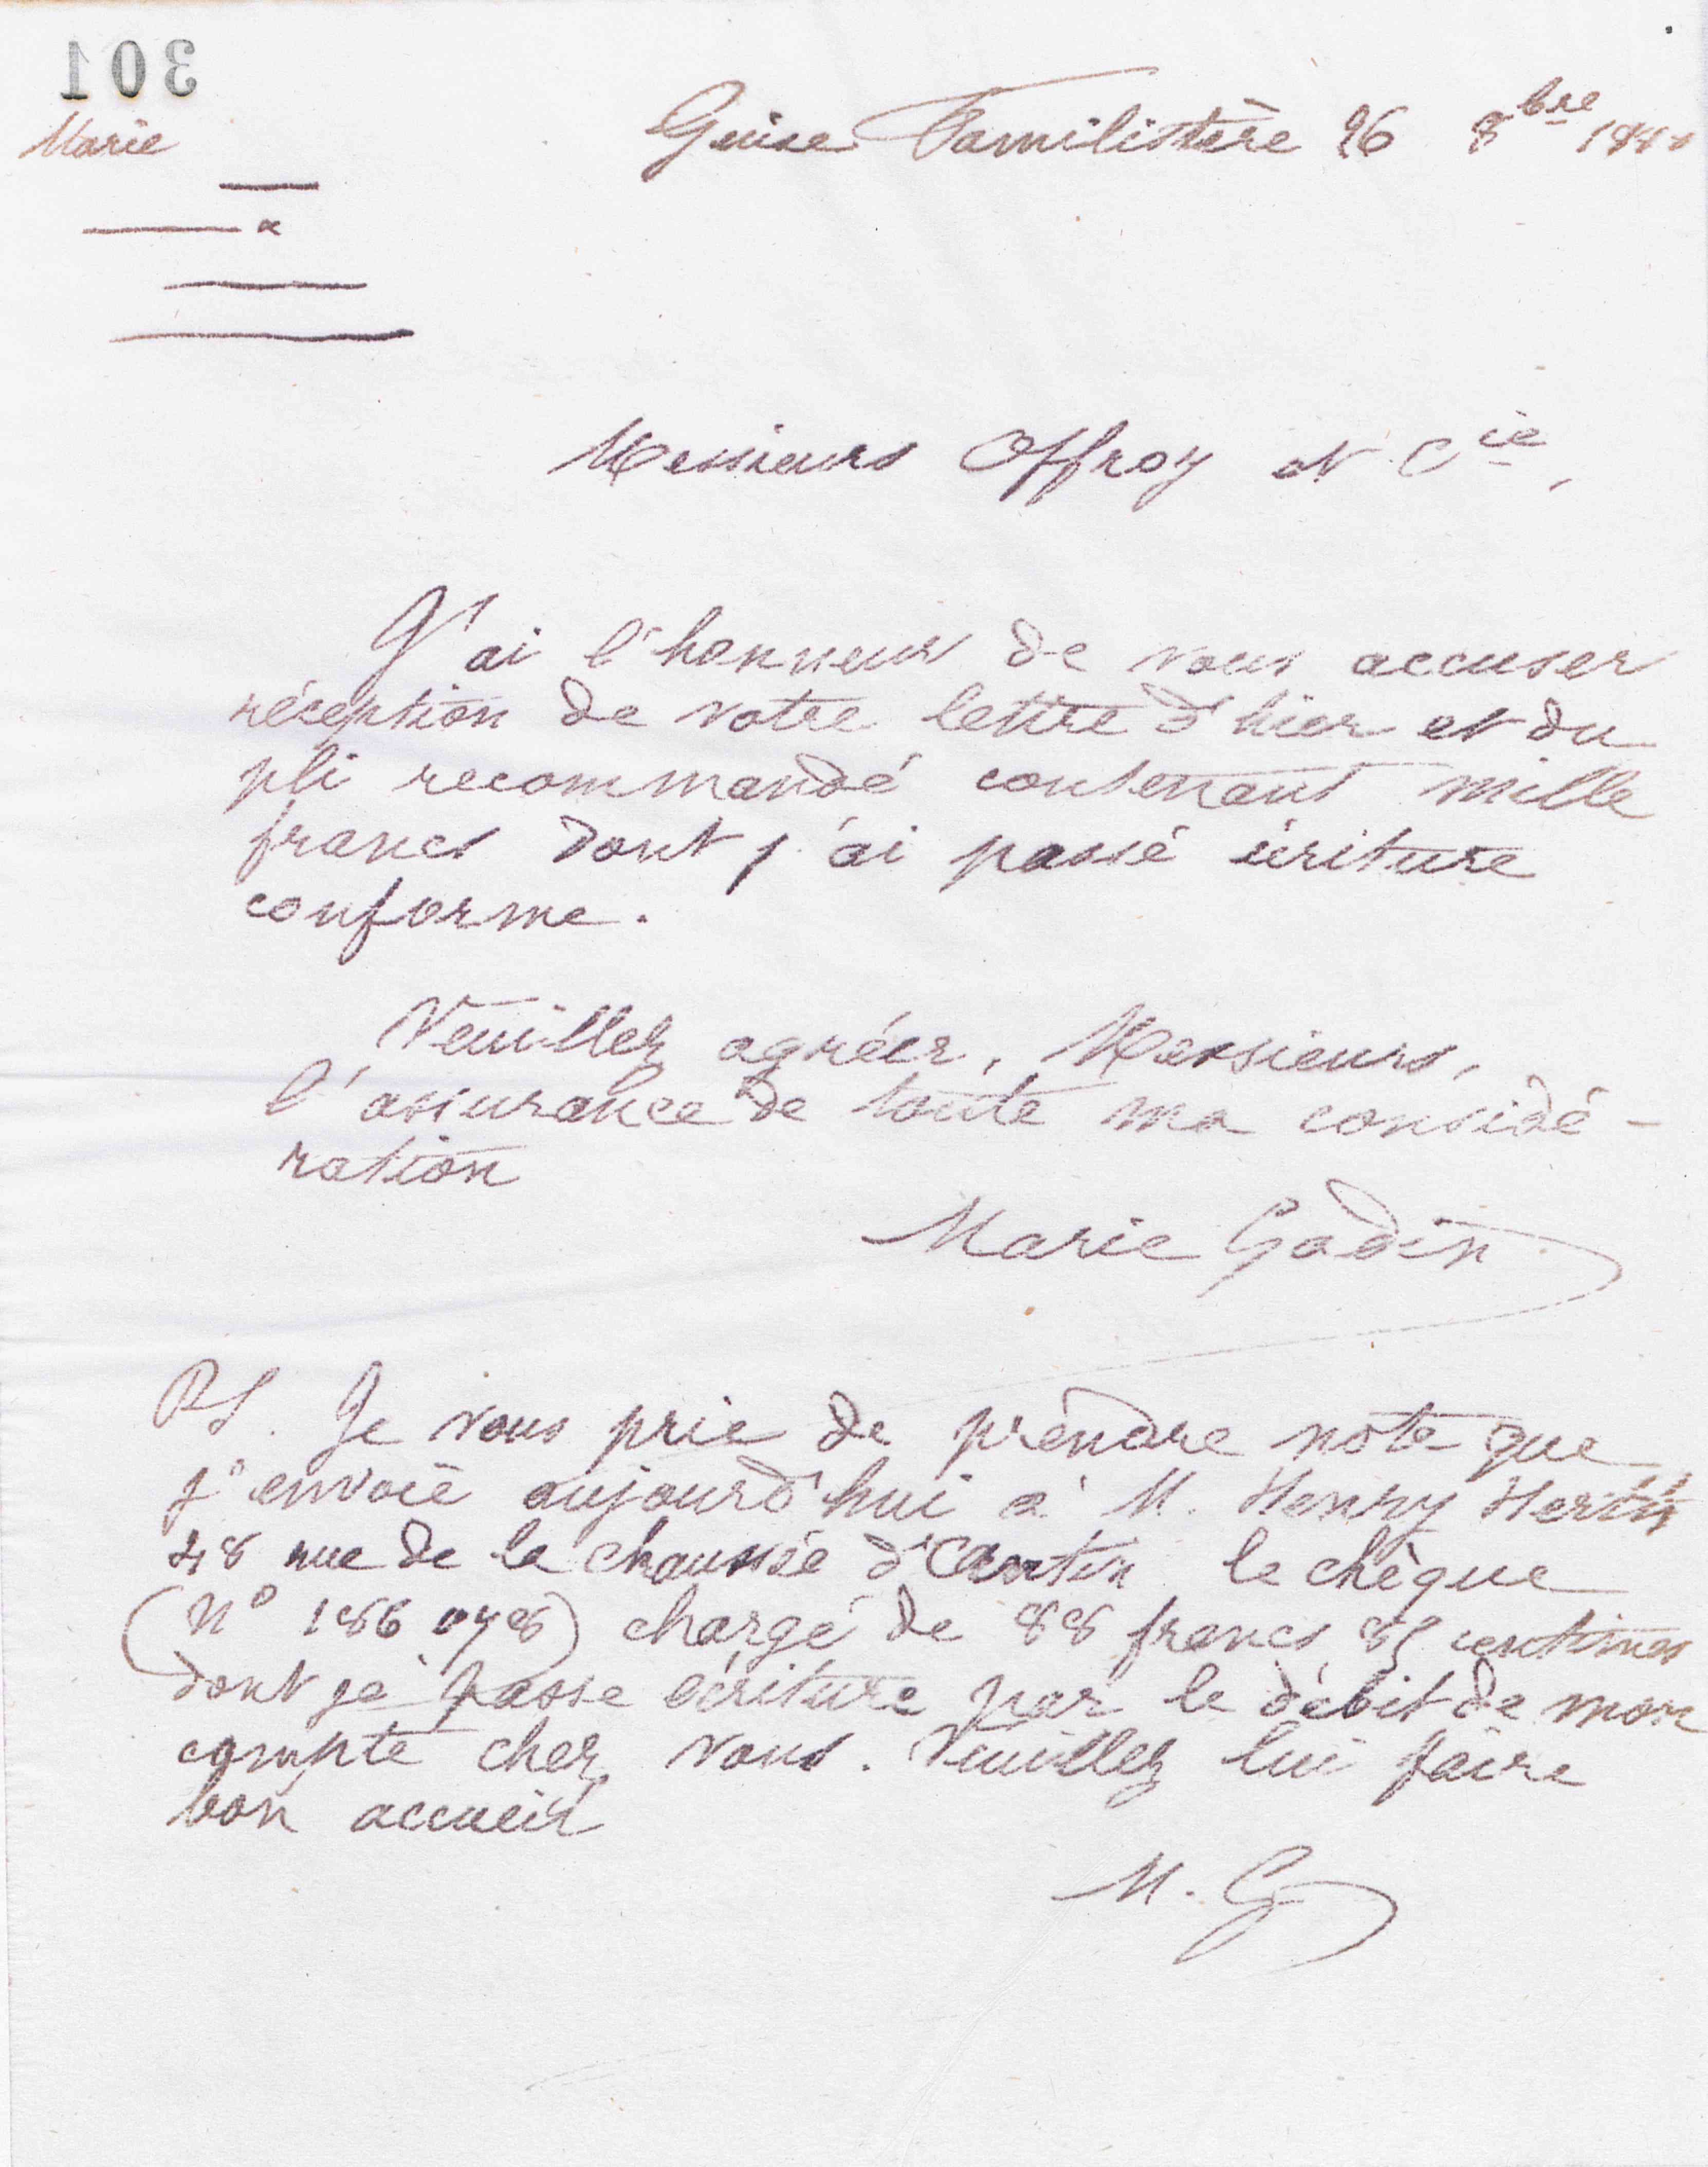 301
Marie
Guise Familistère 26 8bre 188
Messieurs Offroy et Cie,
J'ai l'honneur de vous accuser
réception de votre lettre d'hier et du
pli recommandé contenant mille
francs dont j'ai passé écriture
conforme.
Veuillez agréer, Messieurs,
l'assurance de toute ma considé-
ration
Marie Godin
PS. Je vous prie de prendre note que
j'envoie aujourd'hui à M. Henry
48 rue de la chaussée d'Antin le chèque
(N° 186 078) chargé de 88 francs 85 centimes
dont je passe écriture par le débit de mon
compte chez vous. Veuillez lui faire
bon accueil
M. G